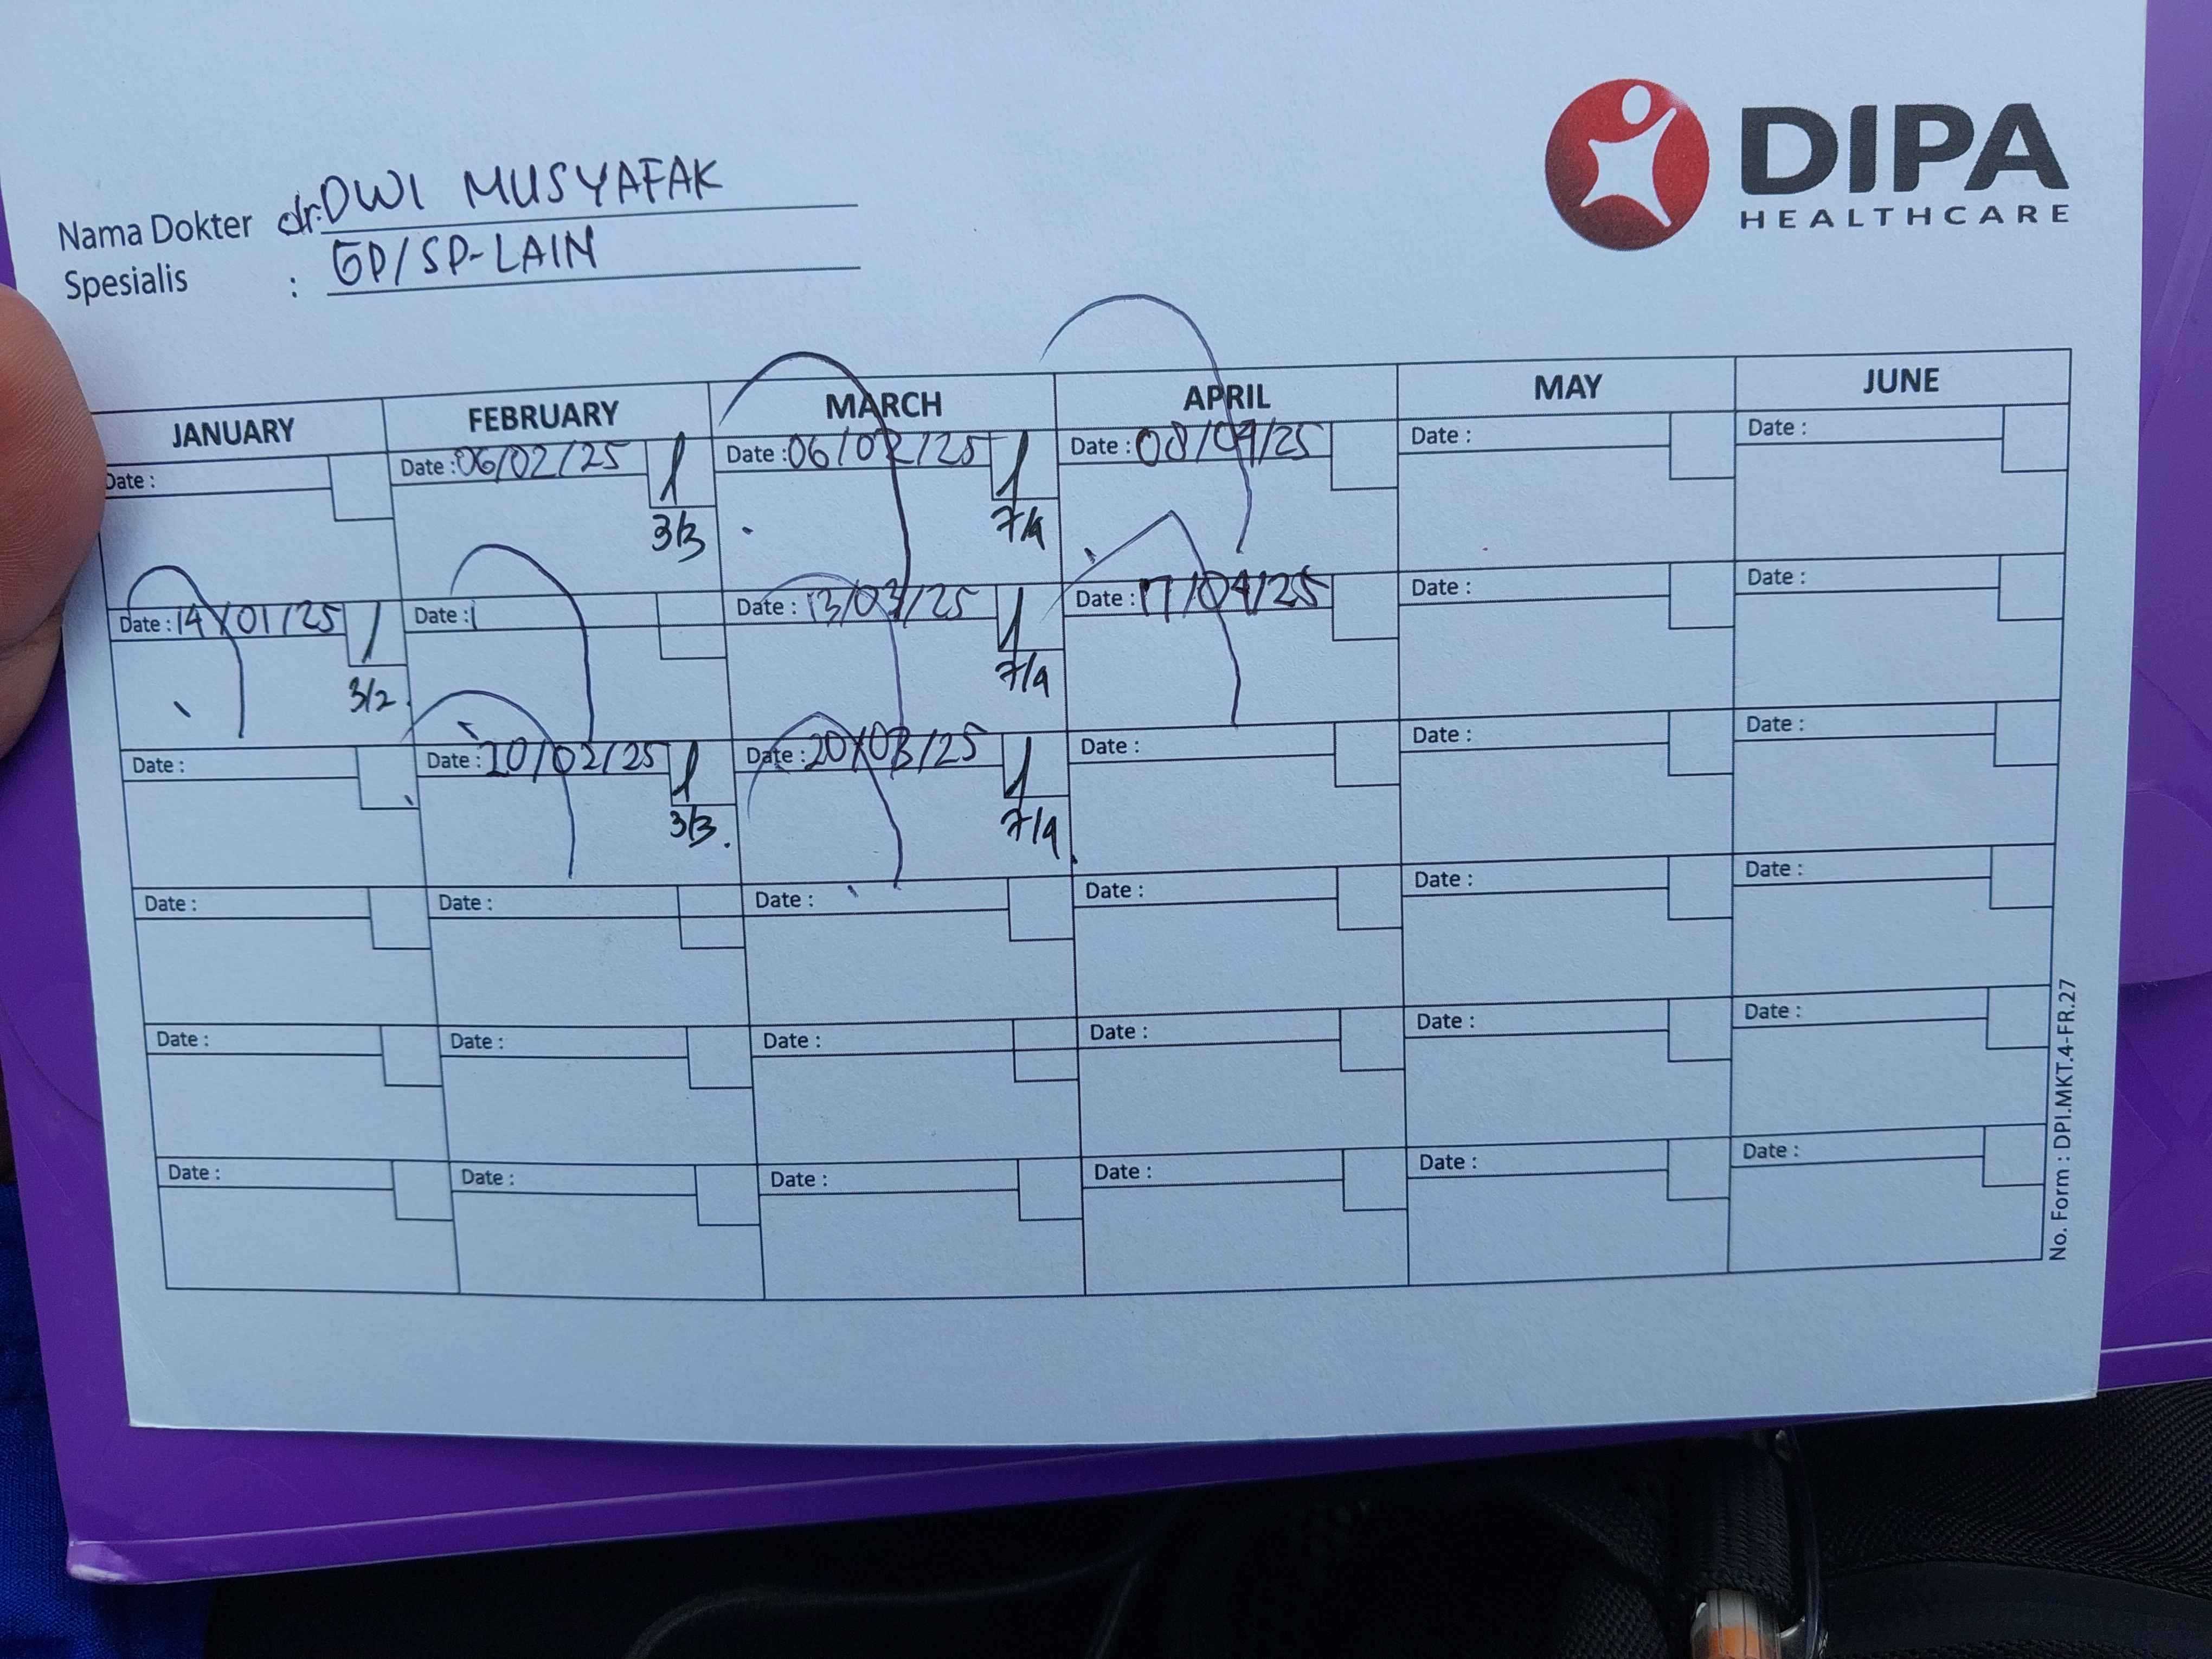 DIPA
HEALTHCARE
Nama Dokter dr. DWI MUSYAFAK
Spesialis : GP/SP-LAIN
JANUARY FEBRUARY MARCH APRIL MAY JUNE
Date : Date : 06/02/25 Date : 06/03/25 Date : 08/04/25 Date : Date :
3/3 7/4
Date : 14/01/25 Date : Date : 13/03/25 Date : 17/04/25 Date : Date :
3/2 7/4
Date : Date : 20/02/25 Date : 20/03/25 Date : Date : Date :
3/3 7/4
Date : Date : Date : Date : Date : Date :
Date : Date : Date : Date : Date : Date :
Date : Date : Date : Date : Date : Date :
No. Form : DPI.MKT.4-FR.27